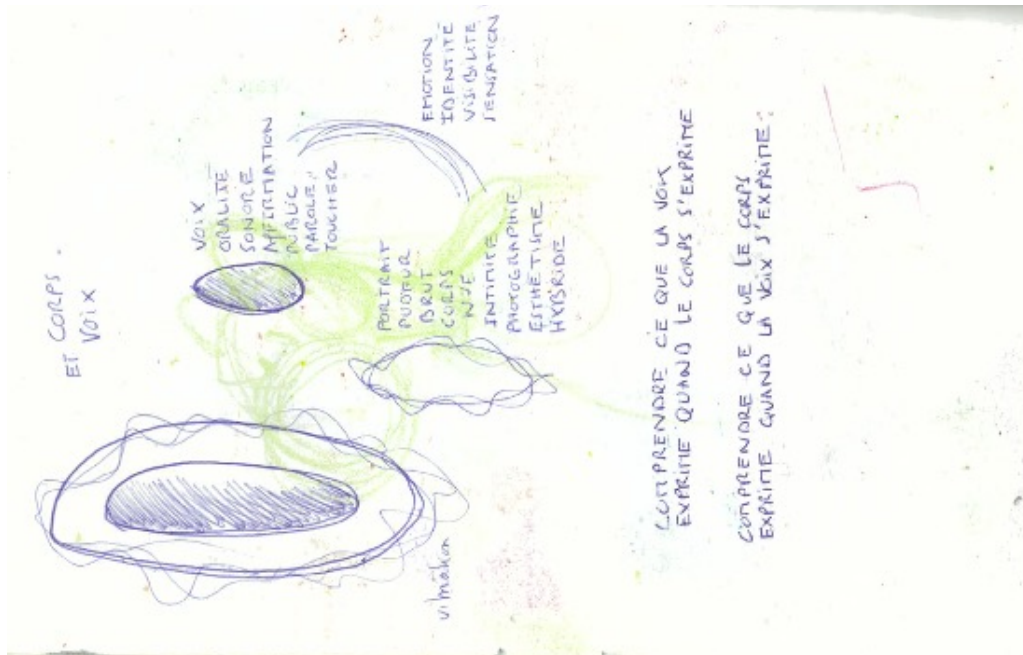 ET CORPS.
VOIX
VOIX
ORALITÉ
SONORE
AFFIRMATION
PUBLIC
PAROLE
TOUCHER
EMOTION
IDENTITÉ
VISIBILITÉ
SENSATION
PORTRAIT
PUDEUR
BRUT
CORPS
NUE
INTIMITÉ
PHOTOGRAPHIE
ESTHÉTISME
HYBRIDE
COMPRENDRE CE QUE LA VOIX
EXPRIME QUAND LE CORPS S'EXPRIME
COMPRENDRE CE QUE LE CORPS
EXPRIME QUAND LA VOIX S'EXPRIME.